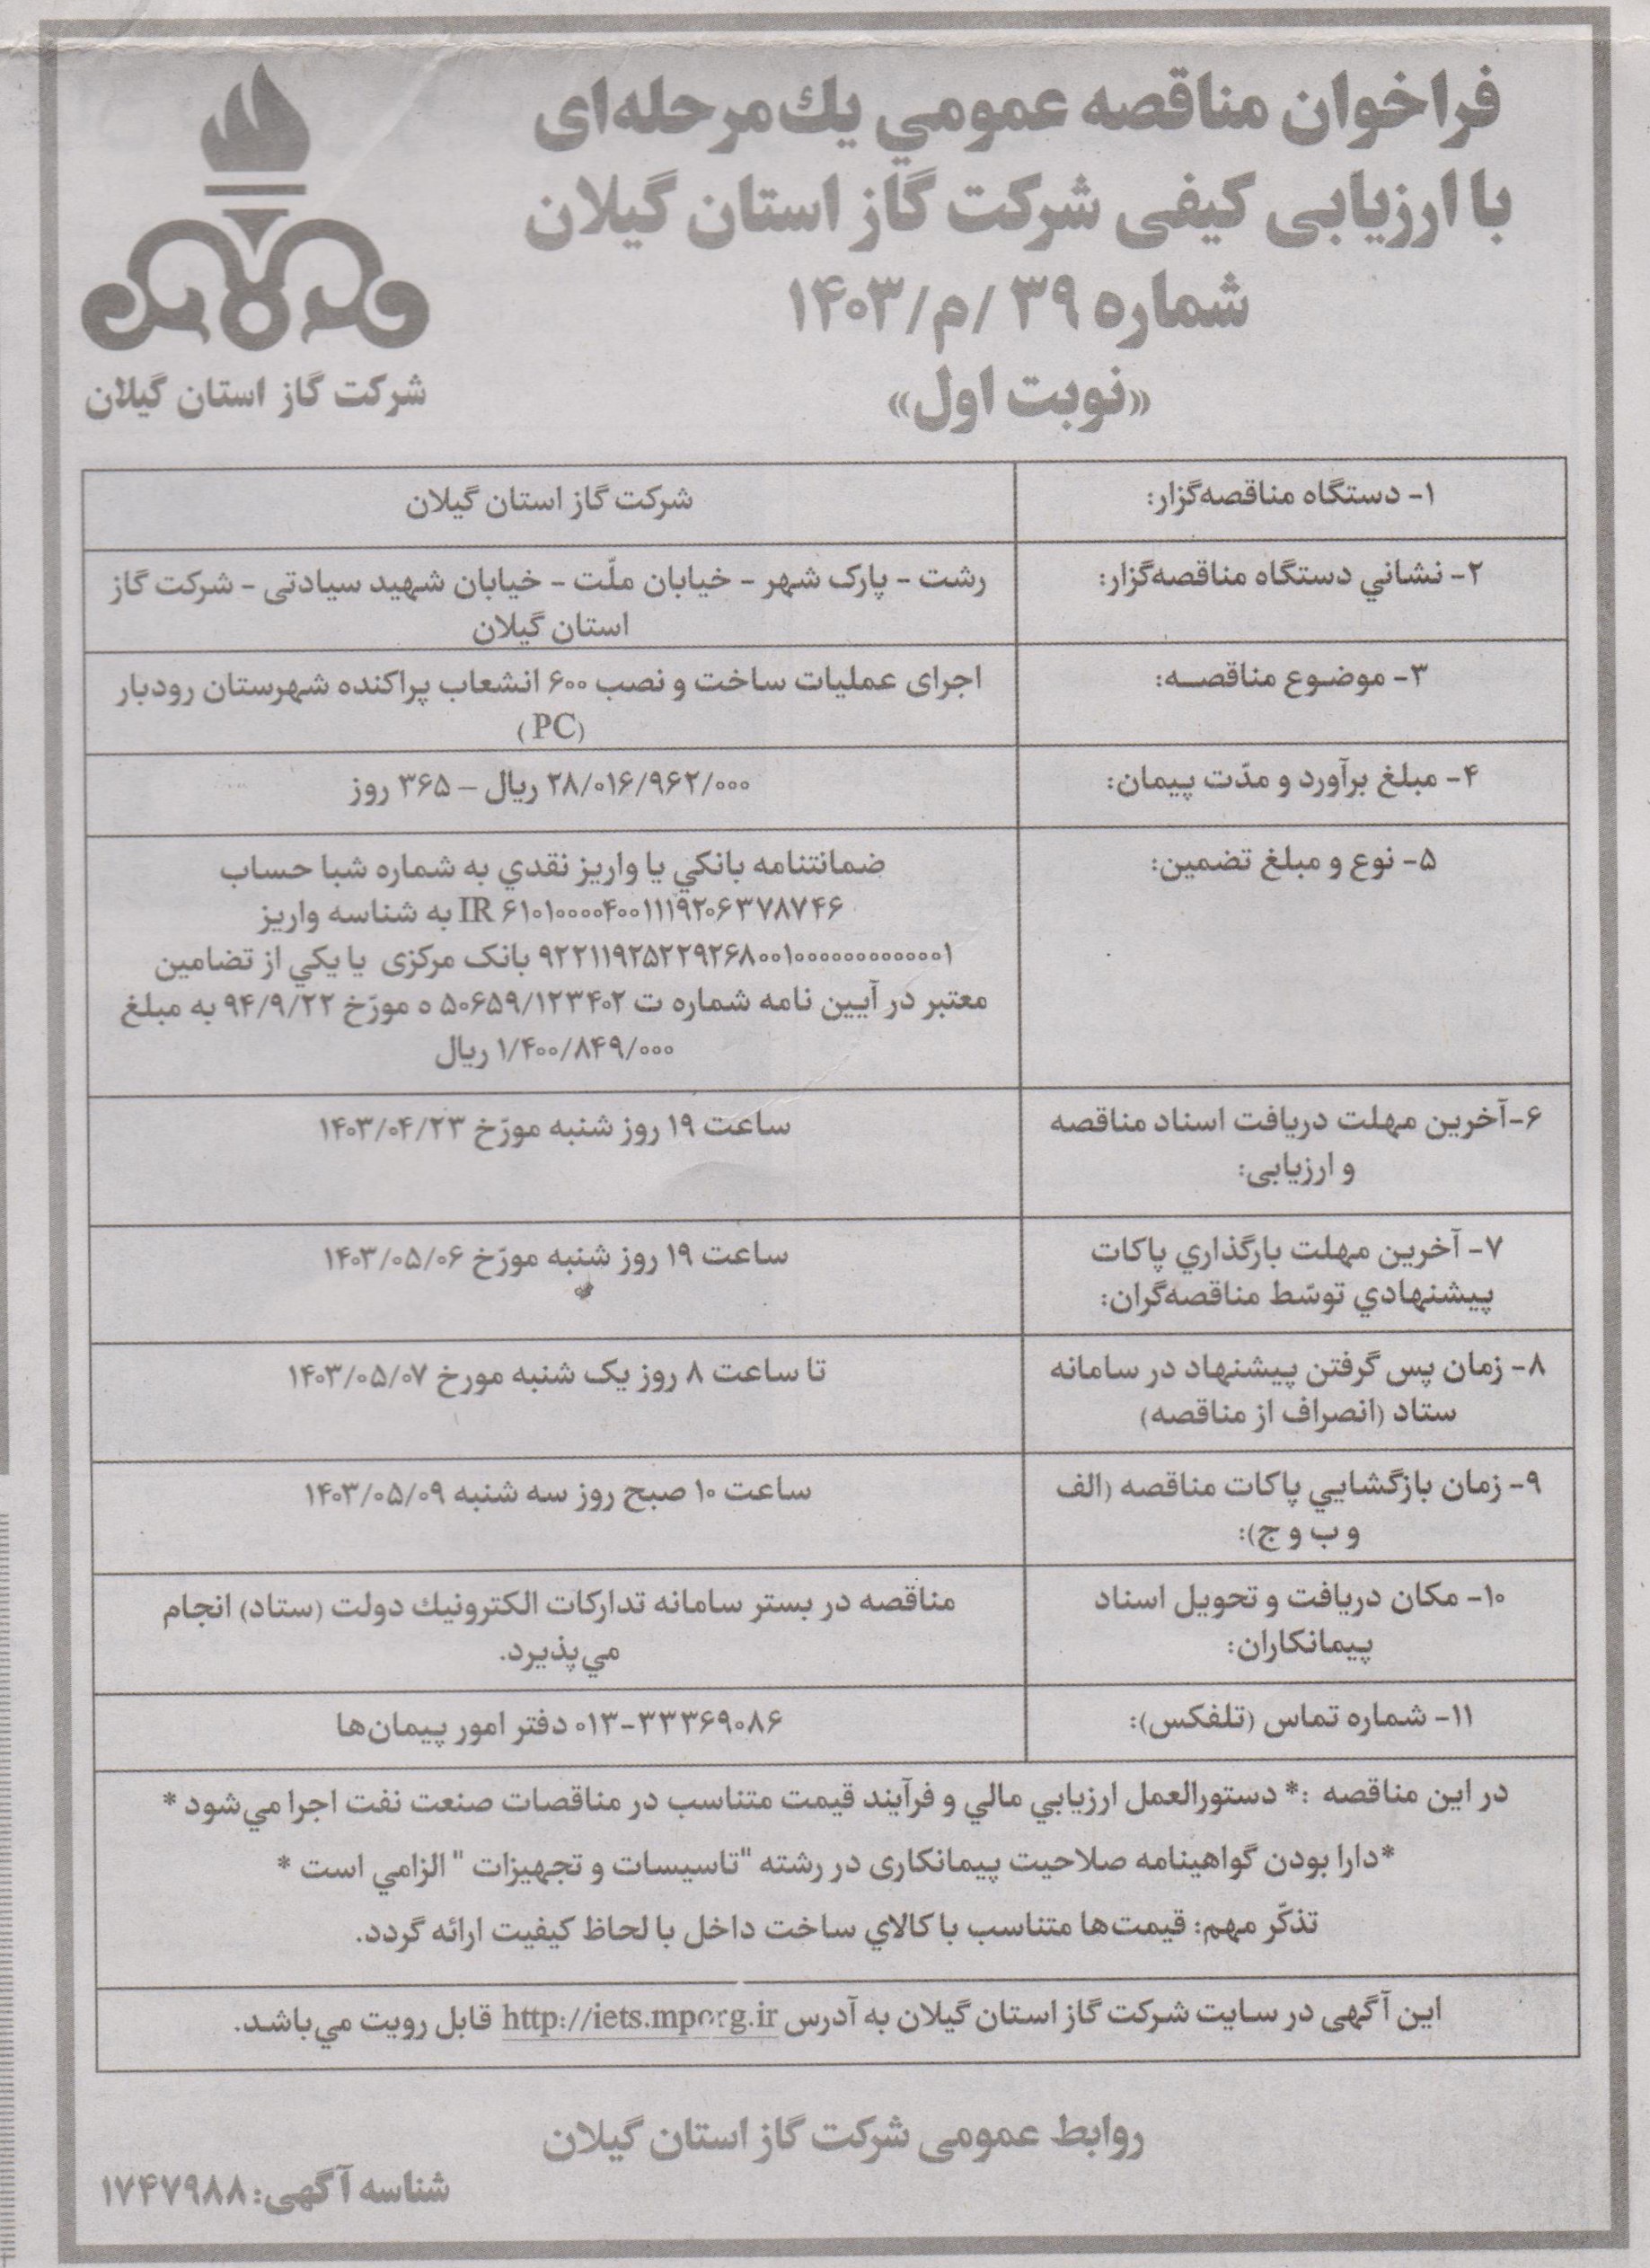 فراخوان مناقصه عمومي يك‌مرحله‌ای
با ارزیابی کیفی شرکت گاز استان گیلان
شماره ۳۹ /م/۱۴۰۳
«نوبت اول»
شرکت گاز استان گیلان
۱- دستگاه مناقصه‌گزار:
شرکت گاز استان گیلان
۲- نشاني دستگاه مناقصه‌گزار:
رشت - پارک شهر - خیابان ملّت - خیابان شهید سیادتی - شرکت گاز
استان گیلان
۳- موضوع مناقصـــه:
اجرای عملیات ساخت و نصب ۶۰۰ انشعاب پراکنده شهرستان رودبار
(PC )
۴- مبلغ برآورد و مدّت پیمان:
۲۸/۰۱۶/۹۶۲/۰۰۰ ریال – ۳۶۵ روز
۵- نوع و مبلغ تضمین:
ضمانتنامه بانكي يا واريز نقدي به شماره شبا حساب
IR ۶۱۰۱۰۰۰۰۴۰۰۱۱۱۹۲۰۶۳۷۸۷۴۶ به شناسه واریز
۹۲۲۱۱۹۲۵۲۲۹۲۶۸۰۰۱۰۰۰۰۰۰۰۰۰۰۰۰۱ بانک مرکزی یا یکي از تضامین
معتبر در آیین نامه شماره ت ۵۰۶۵۹/۱۲۳۴۰۲ ه مورّخ ۹۴/۹/۲۲ به مبلغ
۱/۴۰۰/۸۴۹/۰۰۰ ریال
۶-آخرین مهلت دریافت اسناد مناقصه
و ارزیابی:
ساعت ۱۹ روز شنبه مورّخ ۱۴۰۳/۰۴/۲۳
۷- آخرین مهلت بارگذاري پاکات
پیشنهادي توسّط مناقصه‌گران:
ساعت ۱۹ روز شنبه مورّخ ۱۴۰۳/۰۵/۰۶
۸- زمان پس گرفتن پیشنهاد در سامانه
ستاد (انصراف از مناقصه)
تا ساعت ۸ روز یک شنبه مورخ ۱۴۰۳/۰۵/۰۷
۹- زمان بازگشايي پاکات مناقصه (الف
و ب و ج):
ساعت ۱۰ صبح روز سه شنبه ۱۴۰۳/۰۵/۰۹
۱۰- مکان دریافت و تحویل اسناد
پیمانکاران:
مناقصه در بستر سامانه تدارکات الكترونيك دولت (ستاد) انجام
مي‌پذیرد.
۱۱- شماره تماس (تلفکس):
۰۱۳-۳۳۳۶۹۰۸۶ دفتر امور پیمان‌ها
در این مناقصه :* دستورالعمل ارزيابي مالي و فرآیند قیمت متناسب در مناقصات صنعت نفت اجرا مي‌شود *
*دارا بودن گواهینامه صلاحیت پیمانکاری در رشته "تاسیسات و تجهیزات " الزامي است *
تذکّر مهم: قیمت‌ها متناسب با کالاي ساخت داخل با لحاظ کیفیت ارائه گردد.
این آگهی در سایت شرکت گاز استان گیلان به آدرس http://iets.mporg.ir قابل رویت مي‌باشد.
روابط عمومی شرکت گاز استان گیلان
شناسه آگهی: ۱۷۴۷۹۸۸